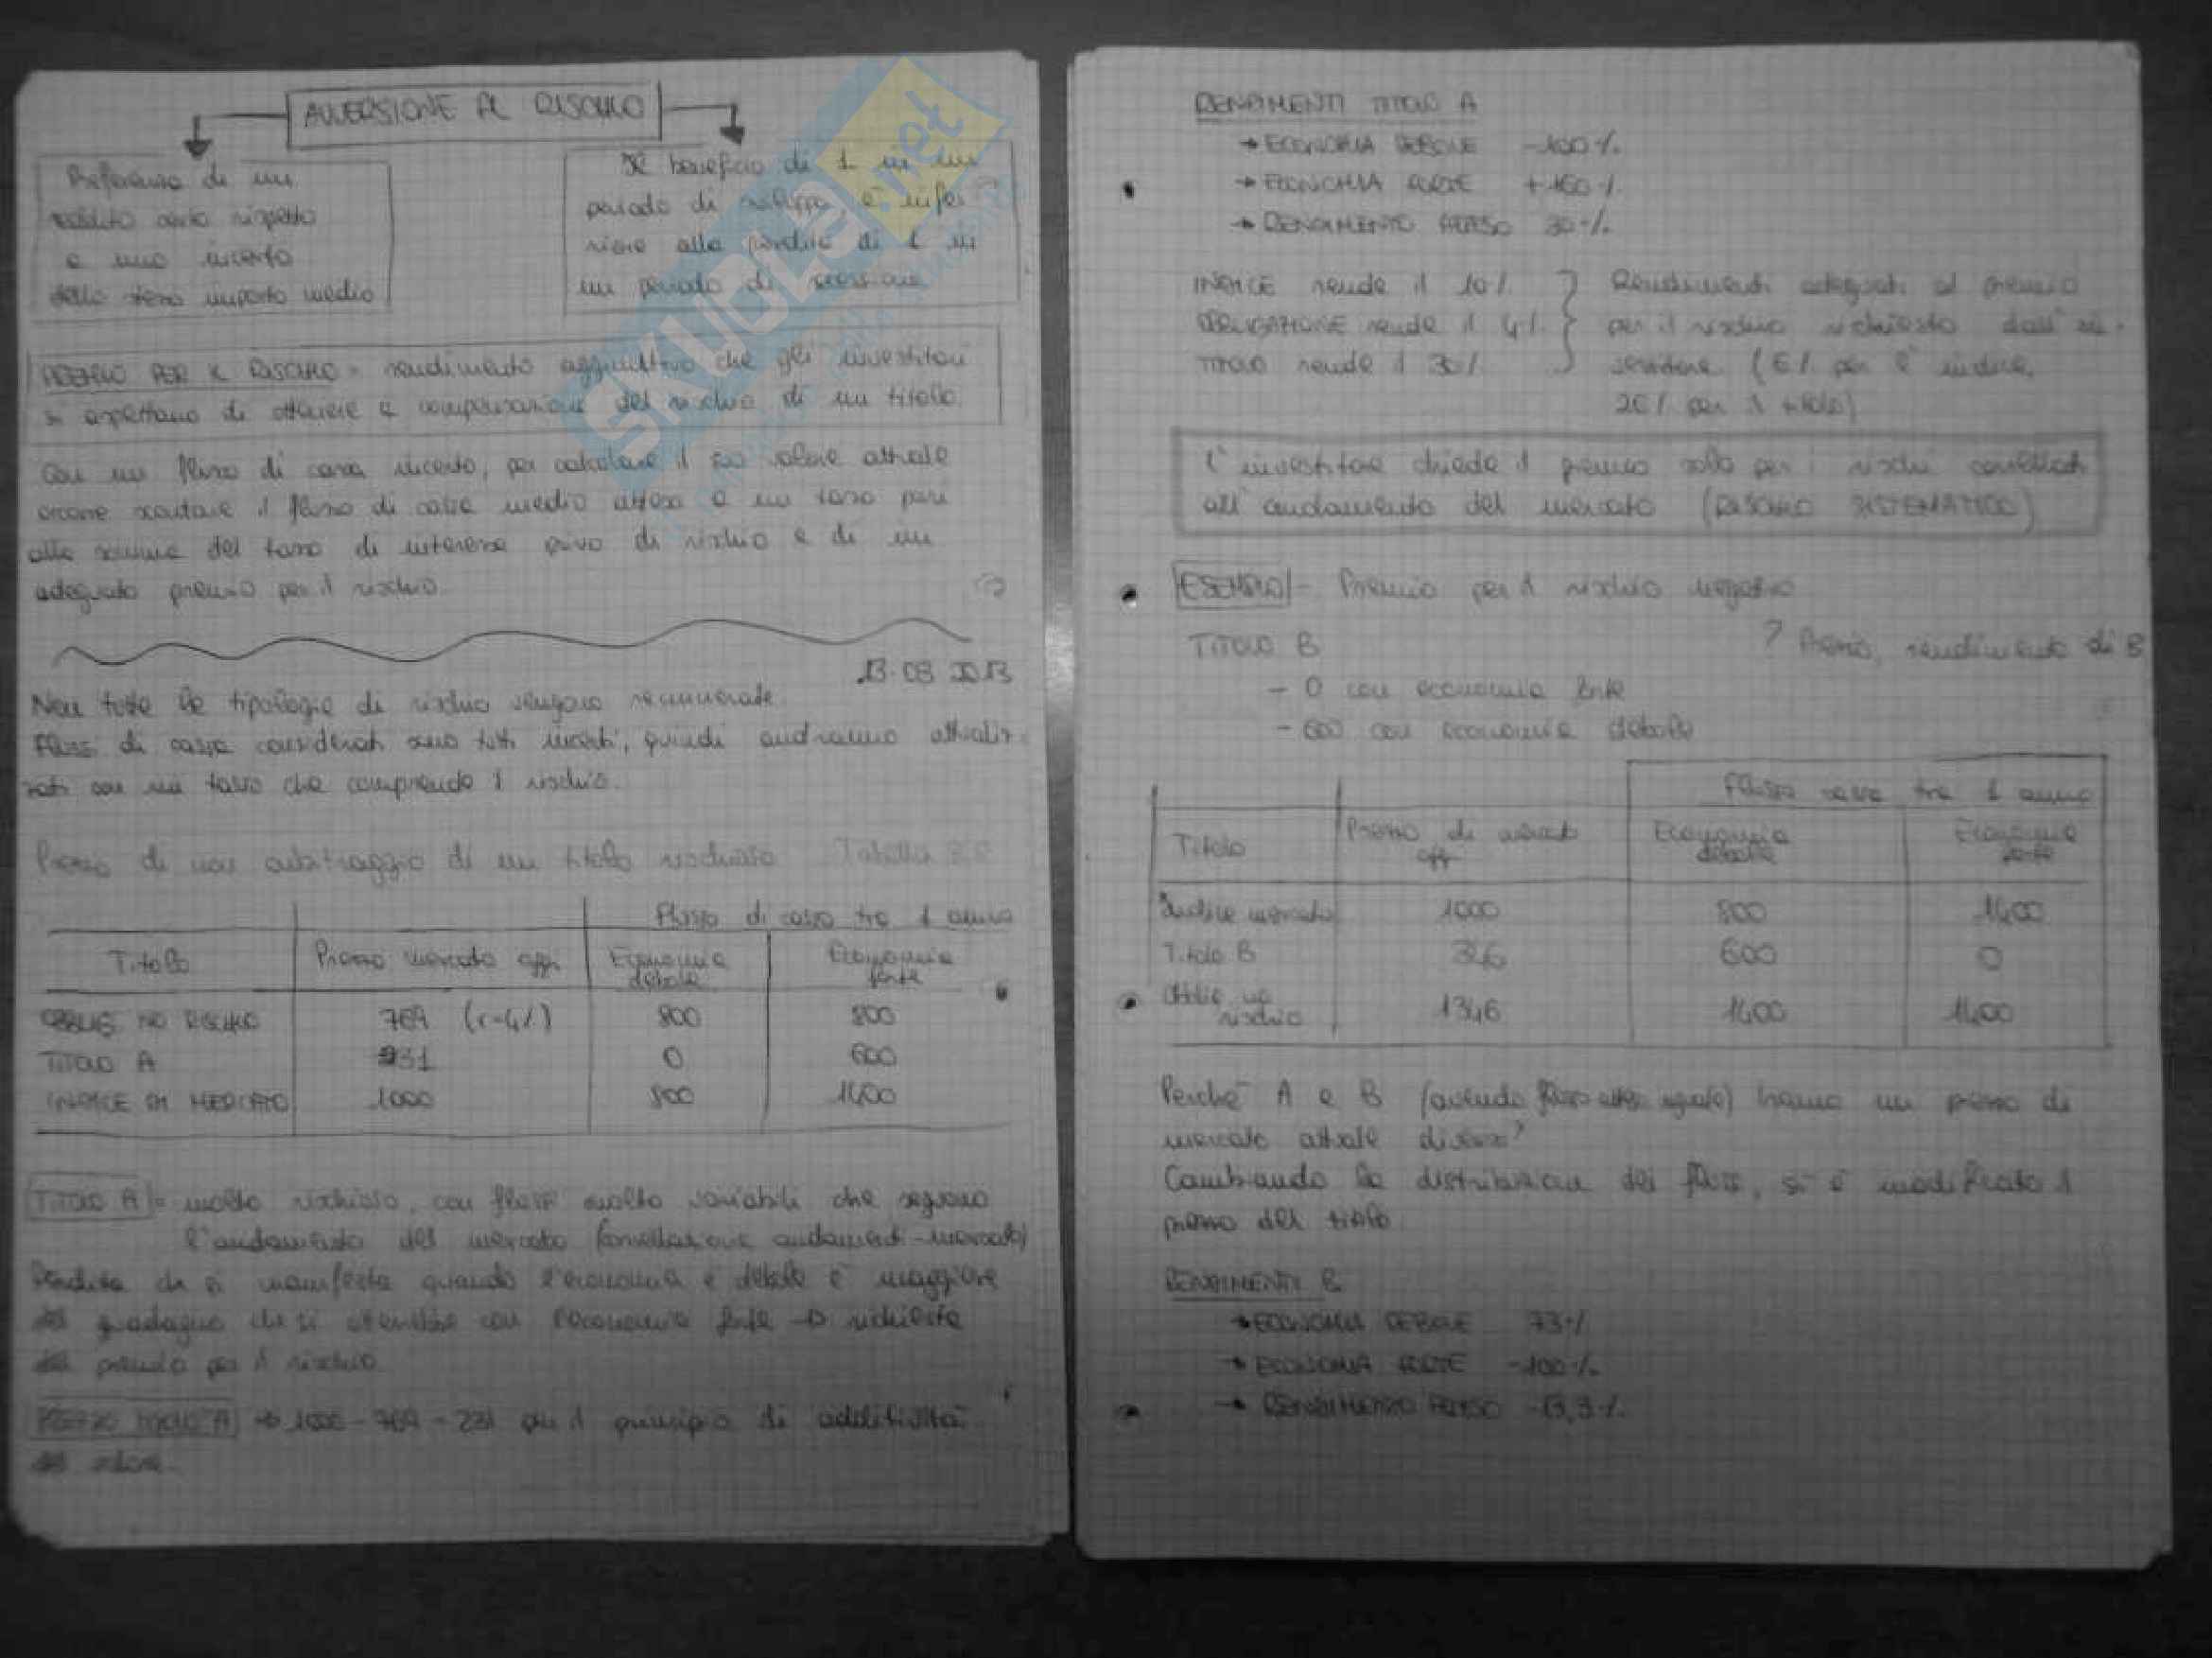 AVVERSIONE AL RISCHIO
Preferenza di un
reddito certo rispetto
a uno incerto
dello stesso importo medio
Il beneficio di 1 in un
periodo di sviluppo è infe-
riore alla perdita di 1 in
un periodo di recessione
PREMIO PER IL RISCHIO = rendimento aggiuntivo che gli investitori
si aspettano di ottenere a compensazione del rischio di un titolo.
Con un flusso di cassa incerto, per calcolare il suo valore attuale
occorre scontare il flusso di cassa medio atteso a un tasso pari
alla somma del tasso di interesse privo di rischio e di un
adeguato premio per il rischio.
13.03.2013
Non tutte le tipologie di rischio vengono remunerate.
Flussi di cassa considerati sono tutti incerti, quindi andranno attualiz-
zati con un tasso che comprende il rischio.
Prezzo di non arbitraggio di un titolo rischioso Tabella
Flusso di cassa tra 1 anno
Titolo Prezzo mercato oggi Economia debole Economia forte
OBBLIG NO RISCHIO 769 (r=4%) 800 800
TITOLO A 231 0 600
INDICE DI MERCATO 1000 800 1400
TITOLO A = molto rischioso, con flussi molto variabili che seguono
l'andamento del mercato (correlazione andamenti-mercato)
Perdita che si manifesta quando l'economia è debole è maggiore
guadagno che si otterrebbe con l'economia forte → richiesta
premio per il rischio.
PREZZO TITOLO A → 1000-769=231 per il principio di additività
valore.
RENDIMENTI TITOLO A
→ ECONOMIA DEBOLE -100%
→ ECONOMIA FORTE +160%
→ RENDIMENTO ATTESO 30%
INDICE rende il 10%
OBBLIGAZIONE rende il 4%
TITOLO rende il 30%
Rendimenti adeguati al premio
per il rischio richiesto dall'in-
vestitore (6% per l'indice,
26% per il titolo)
L'investitore chiede il premio solo per i rischi correlati
all'andamento del mercato (RISCHIO SISTEMATICO)
ESEMPIO - Premio per il rischio negativo
TITOLO B ? Prezzo, rendimento di B
- 0 con economia forte
- 600 con economia debole
Flusso cassa tra 1 anno
Titolo Prezzo di mercato oggi Economia debole Economia forte
Indice mercato 1000 800 1400
Titolo B 346 600 0
Obblig no rischio 1346 1400 1400
Perché A e B (avendo flusso atteso uguale) hanno un prezzo di
mercato attuale diverso?
Cambiando la distribuzione dei flussi, si è modificato il
prezzo del titolo.
RENDIMENTI B
→ ECONOMIA DEBOLE 73%
→ ECONOMIA FORTE -100%
→ RENDIMENTO ATTESO -13,3%
SKUOLA.net